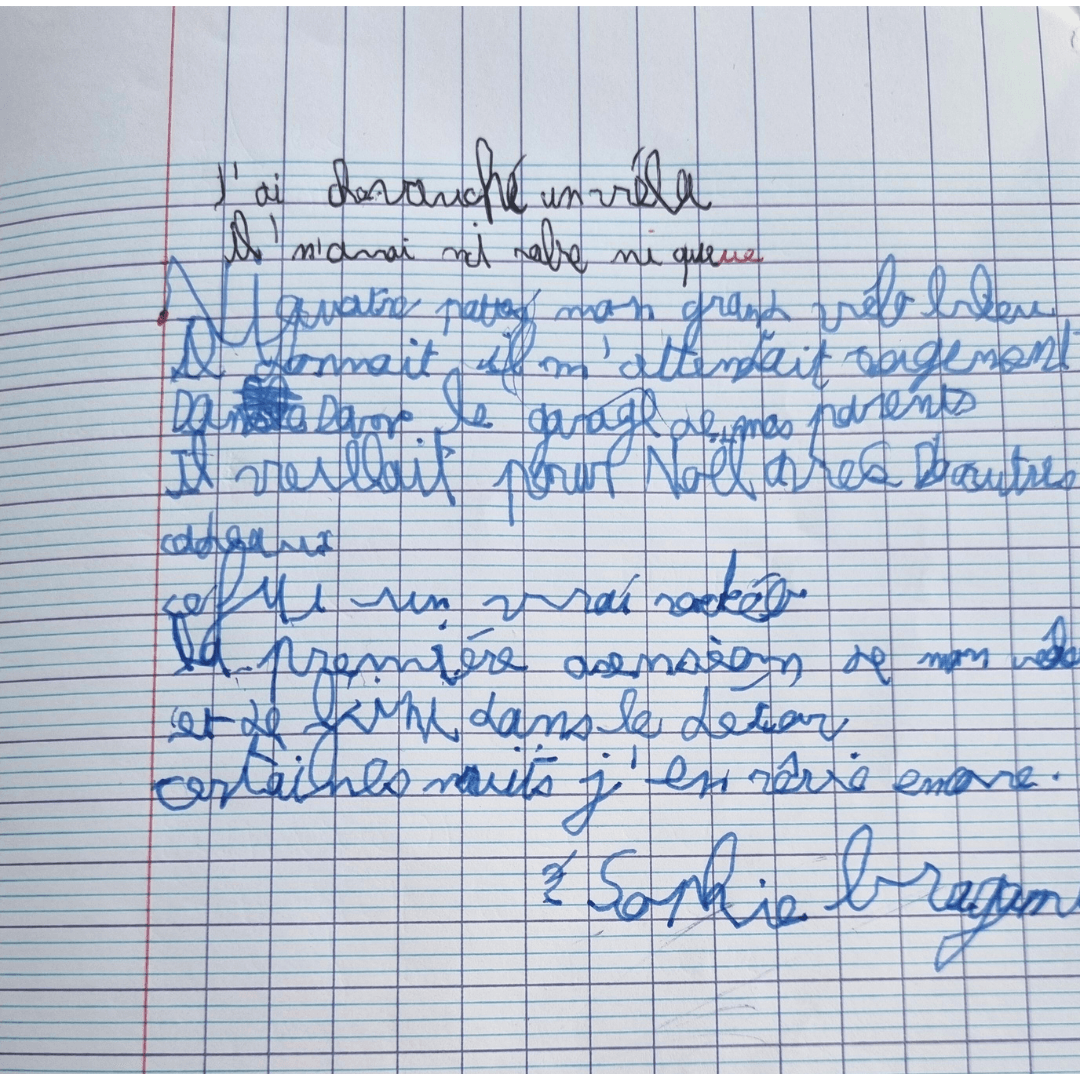 J'ai chevauché un vélo
Il n'avai ni robe ni queue
Ni quatre pattes mon grand vélo bleu
Il dormait il m'attendait sagement
Dans le garage de mes parents
Il veillait pour Noël avec D'autres
cadeaux
ce fut un vrai rodéo
la première ascension de mon vélo
et de finit dans le decor
certaines nuits j'en rêvie encore.
Sophie bragam